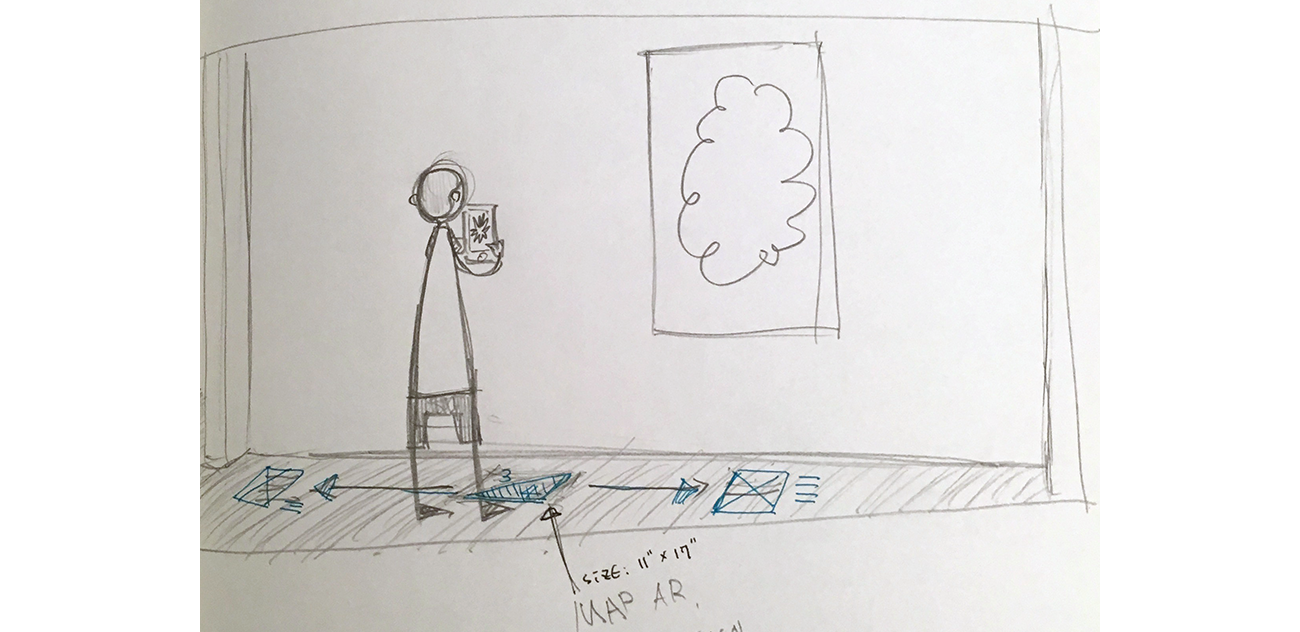 3
SIZE: 11" x 17"
MAP AR.